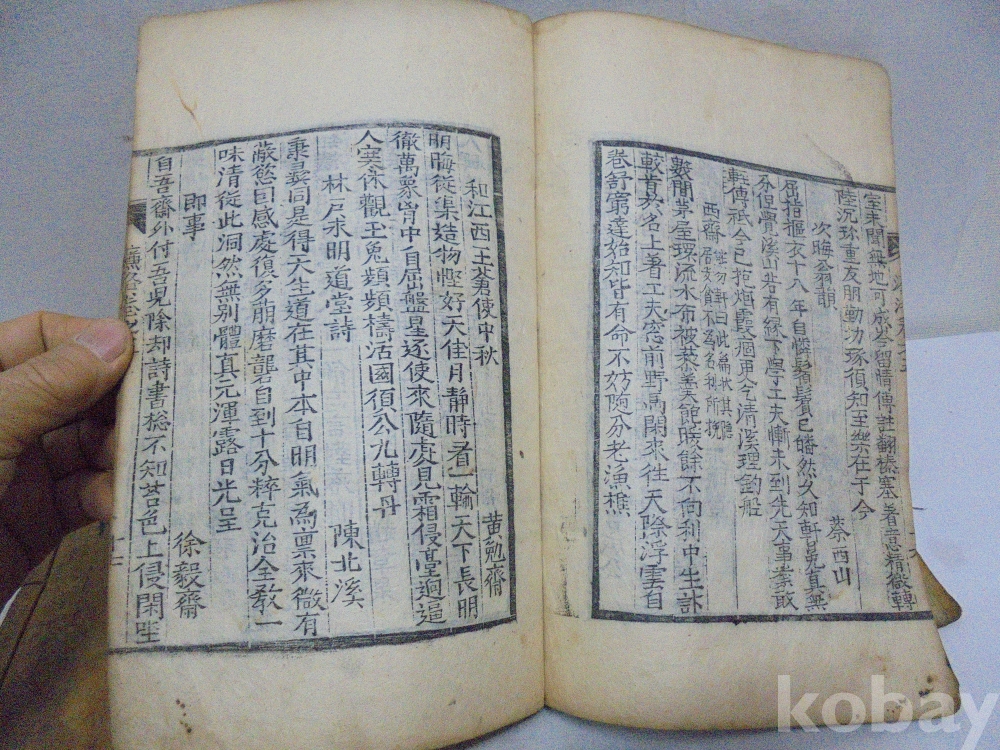 室未聞無地可成岑留情傳註翻橫塞着意精微轉
陸沉珎重友朋勤切琢須知至樂在于今
次晦翁韻
蔡西山
屈指摳衣十八年自憐鬚鬢已皤然久知軒冕真無
分但覺溪山若有緣下學工夫慚未到先天事業敢
輕傳祇今已抱烟霞痼更乞清溪理釣船
西齋
數間茅屋環流水布被藜羹飽暖餘不向利中生計
較肯於名上著工夫窓前野馬閑來往天際浮雲自
卷舒窮達始知皆有命不妨隨分老漁樵
和江西王倉使中秋
黃勉齋
明晦從集造物慳好天佳月靜時看一輪天下長明
徹萬象胷中自屈盤星逐使來隨處見霜侵臺迥逼
人寒休觀玉兔頻頻檮活國須公九轉丹
林戶求明道堂詩
陳北溪
秉彛同是得天生道在其中本自明氣為禀來微有
蔽慾因感處復多萌磨礱目到十分粹克治全教一
味清從此洞然無別體真元渾露日光呈
即事
徐毅齋
自吾齋外付吾兒除却詩書捴不知苔色上侵閑坐
kobay